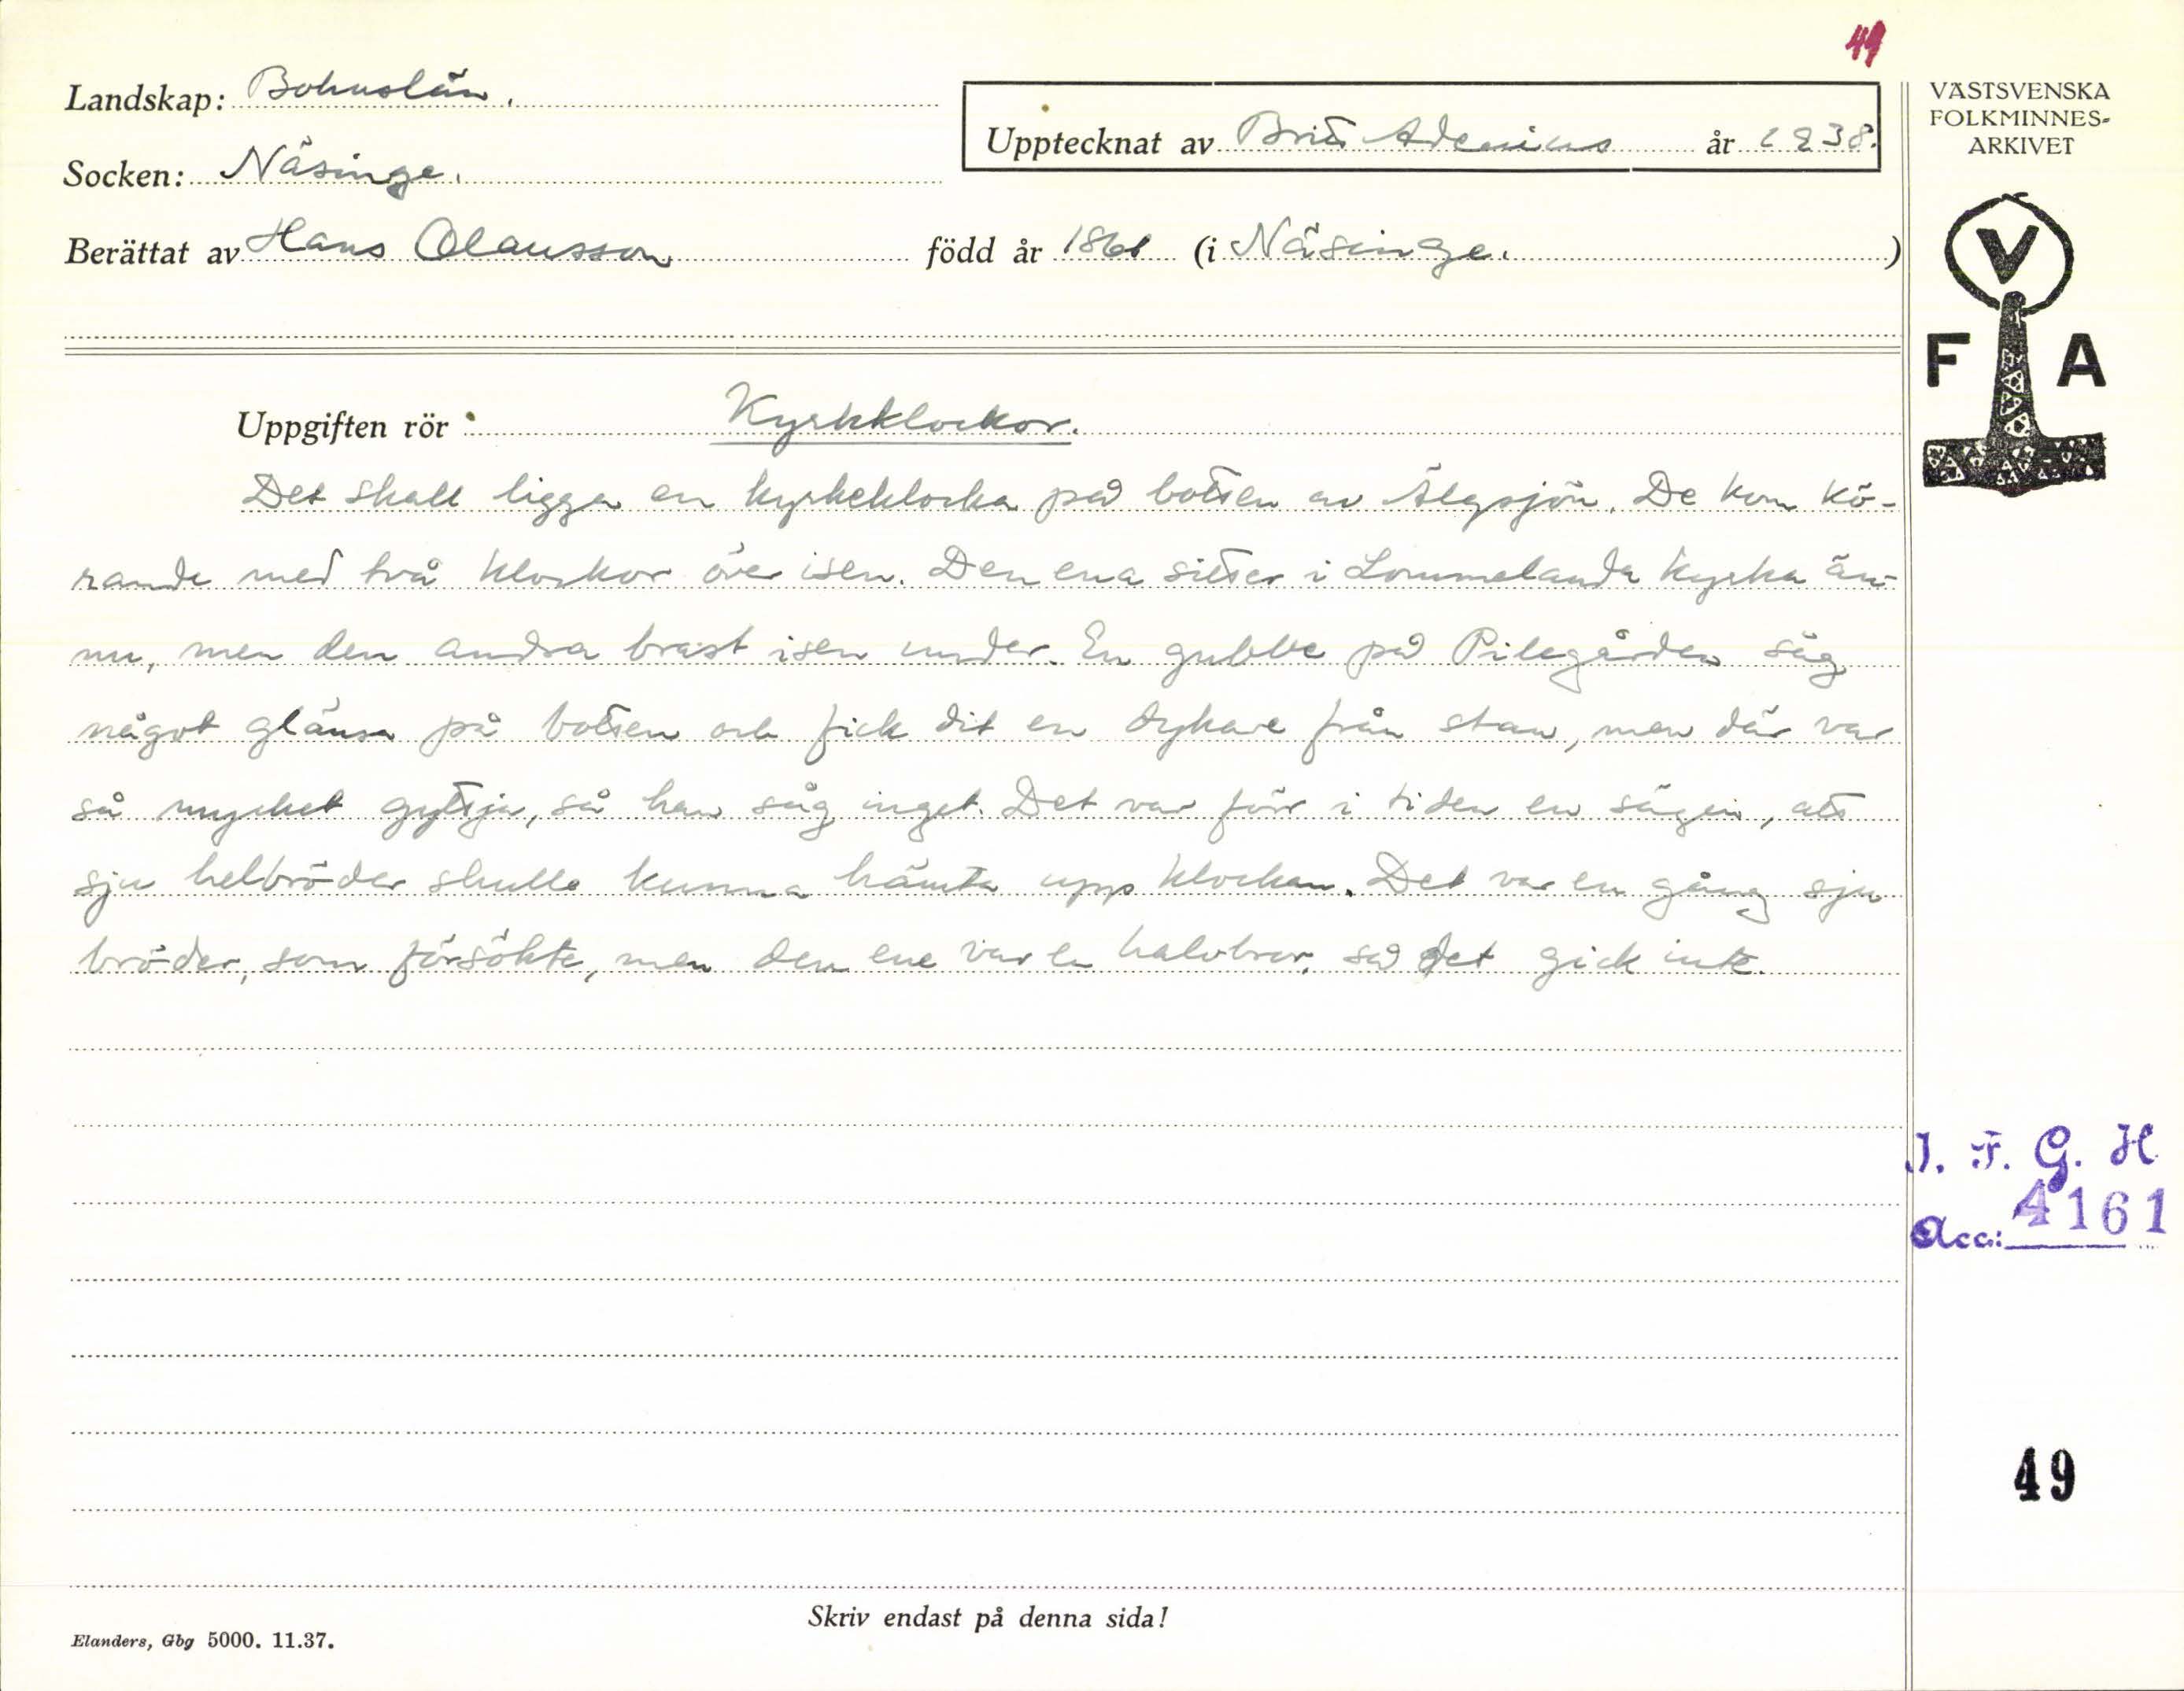 49
Landskap: Bohuslän.
Upptecknat av Britt Adenius år 1938.
Socken: Näsinge.
Berättat av Hans Olausson född år (i Näsinge.)
VÄSTSVENSKA
FOLKMINNES-
ARKIVET
V
F A
Uppgiften rör Kyrkklockor.
Det skall ligga en kyrkeklocka på botten av Älgsjön. De kom kö-
rande med två klockor över isen. Den ena sitter i Lommelanda kyrka än-
nu, men den andra brast isen under. En gubbe på Pilegården såg
något glänsa på botten och fick dit en dykare från stan, men där var
så mycket gyttja, så han såg inget. Det var förr i tiden en sägen, att
sju helbröder skulle kunna hämta upp klockan. Det var en gång sju
bröder, som försökte, men den ene var en halvbror, så det gick inte.
I. F. G. H
Acc: 4161
49
Skriv endast på denna sida!
Elanders, Gbg 5000. 11.37.